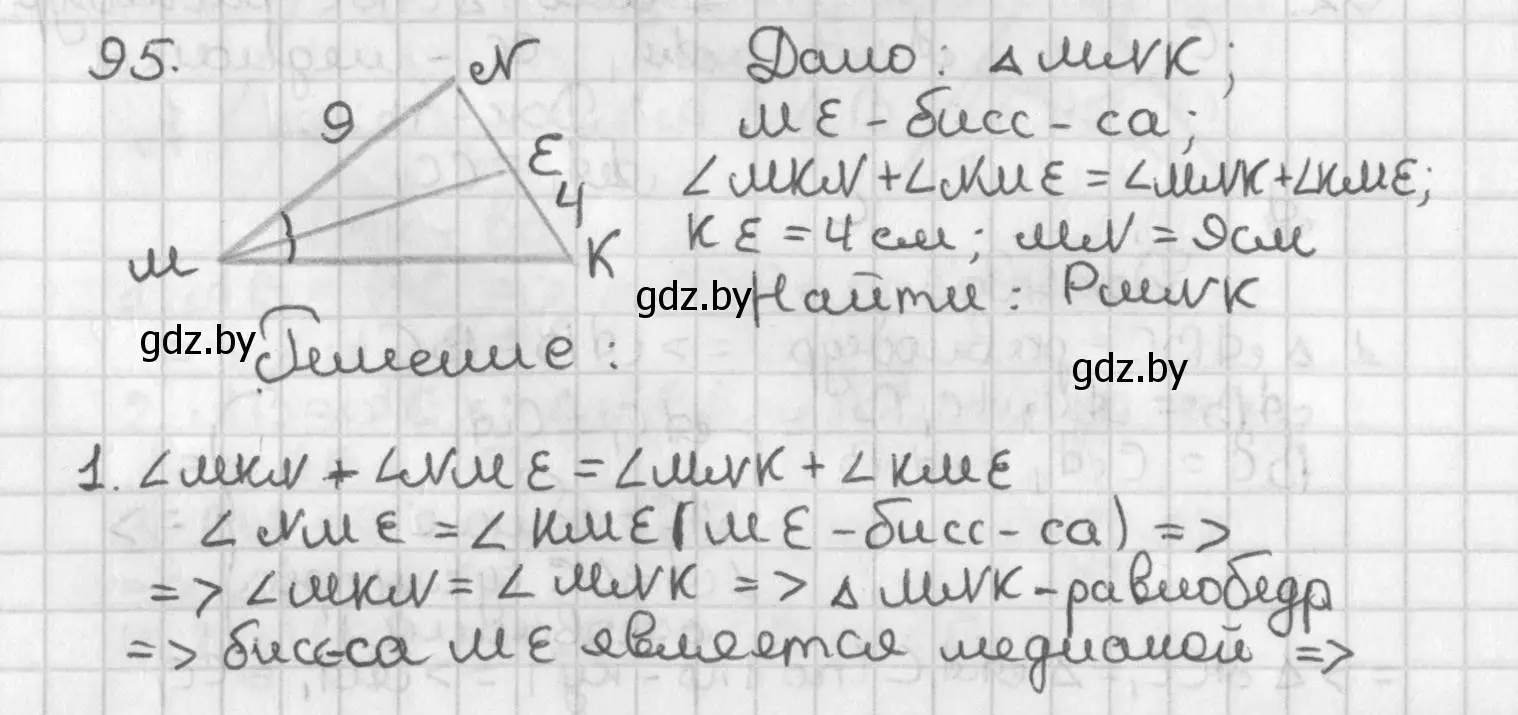 95.
N
9
E
4
M
K
Дано: △MNK;
ME - бисс-са;
∠MKN + ∠NME = ∠MNK + ∠KME;
KE = 4 см; MN = 9 см
Найти: PMNK
gdz.by
gdz.by
Решение:
gdz.by
1. ∠MKN + ∠NME = ∠MNK + ∠KME
∠NME = ∠KME (ME - бисс-са) =>
=> ∠MKN = ∠MNK => △MNK - равнобедр
=> бисс-са ME является медианой =>